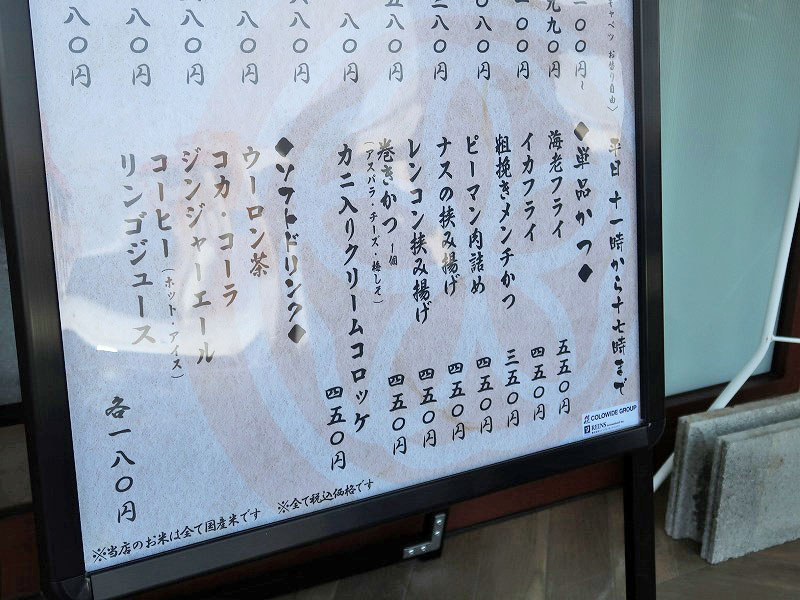 キャベツ お替り自由〉
平日 十一時から十七時まで
一〇〇円〜
九九〇円
八〇円
八〇円
八〇円
八〇円
八〇円
八〇円
八〇円
八〇円
◆単品かつ◆
海老フライ 五五〇円
イカフライ 四五〇円
粗挽きメンチかつ 三五〇円
ピーマン肉詰め 四五〇円
ナスの挟み揚げ 四五〇円
レンコン挟み揚げ 四五〇円
巻きかつ 一個 四五〇円
(アスパラ・チーズ・梅しそ)
カニ入りクリームコロッケ 四五〇円
◆ソフトドリンク◆
ウーロン茶
コカ・コーラ
ジンジャーエール
コーヒー(ホット・アイス)
リンゴジュース
各一八〇円
※当店のお米は全て国産米です ※全て税込価格です
COLOWIDE GROUP
REINS